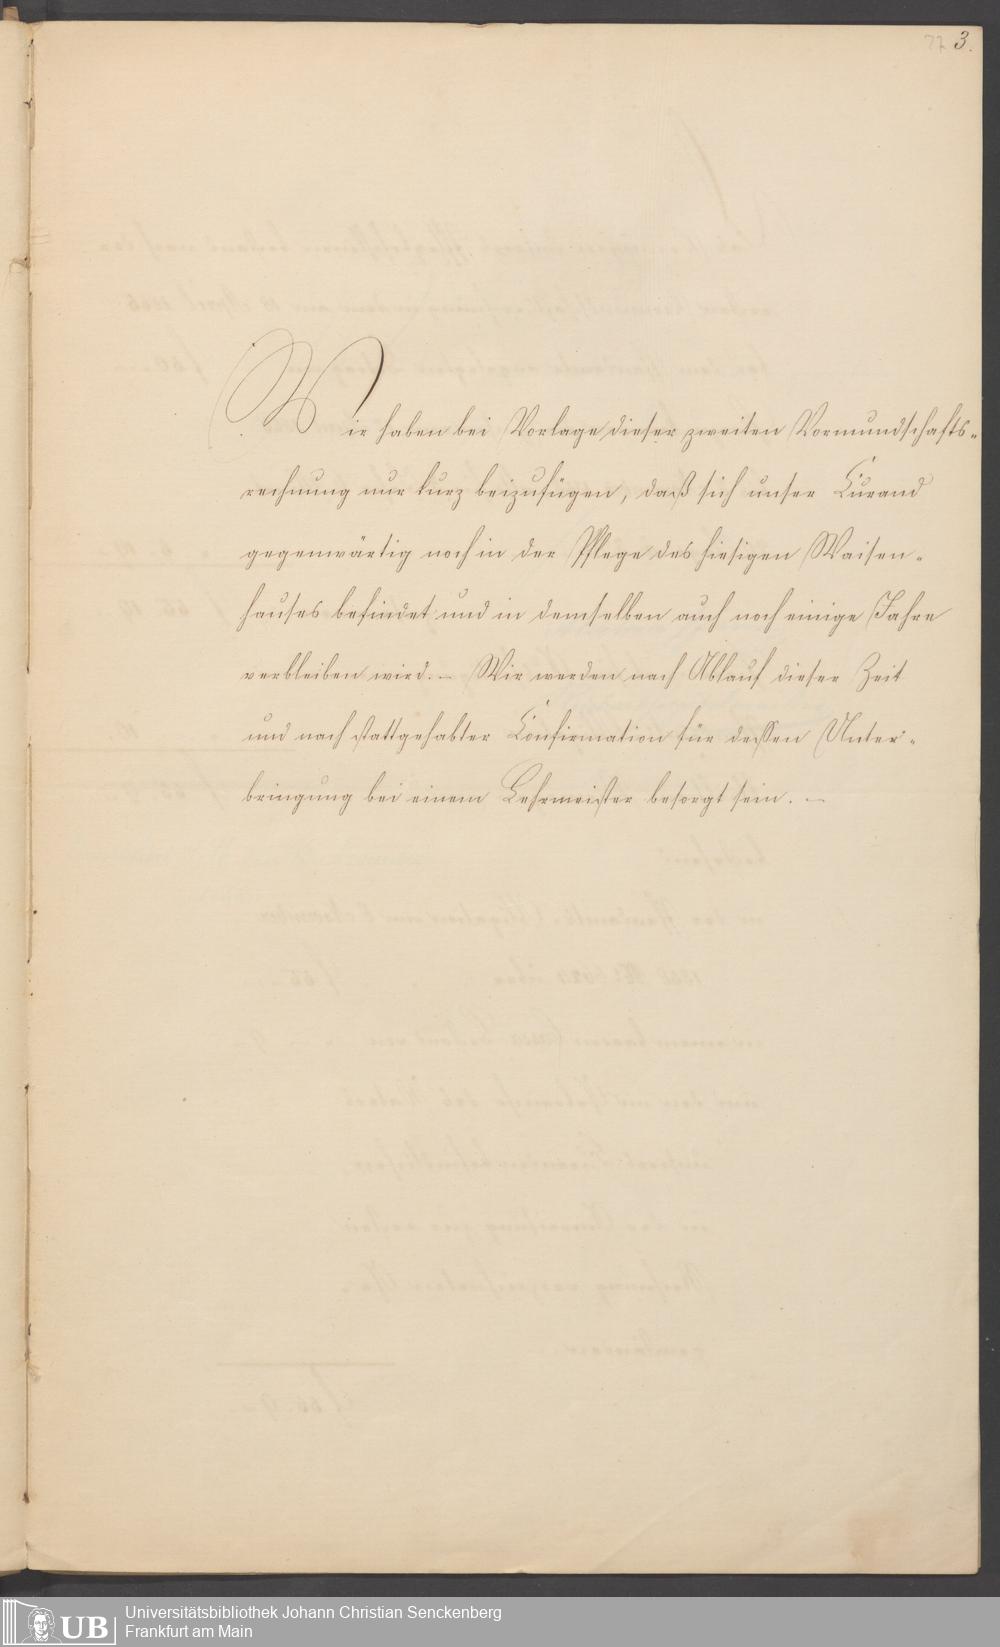 77 3.
Wir haben bei Vorlage dieser zweiten Vormundschafts-
rechnung nur kurz beizufügen, daß sich unser Curand
gegenwärtig noch in der Pflege des hiesigen Waisen-
hauses befindet und in demselben auch noch einige Jahre
verbleiben wird. – Wir werden nach Ablauf dieser Zeit
und nach stattgehabter Confirmation für dessen Unter-
bringung bei einem Lehrmeister besorgt sein. –
UB
Universitätsbibliothek Johann Christian Senckenberg
Frankfurt am Main